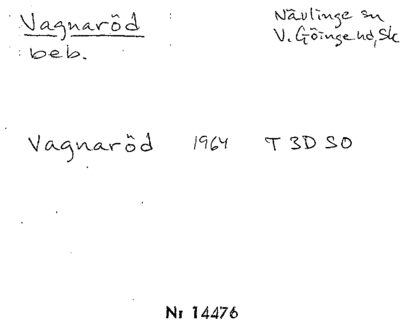 Vagnaröd
beb.
Nävlinge sn
V. Göinge hd, Sk
Vagnaröd 1964 T 3D SO
Nr 14476